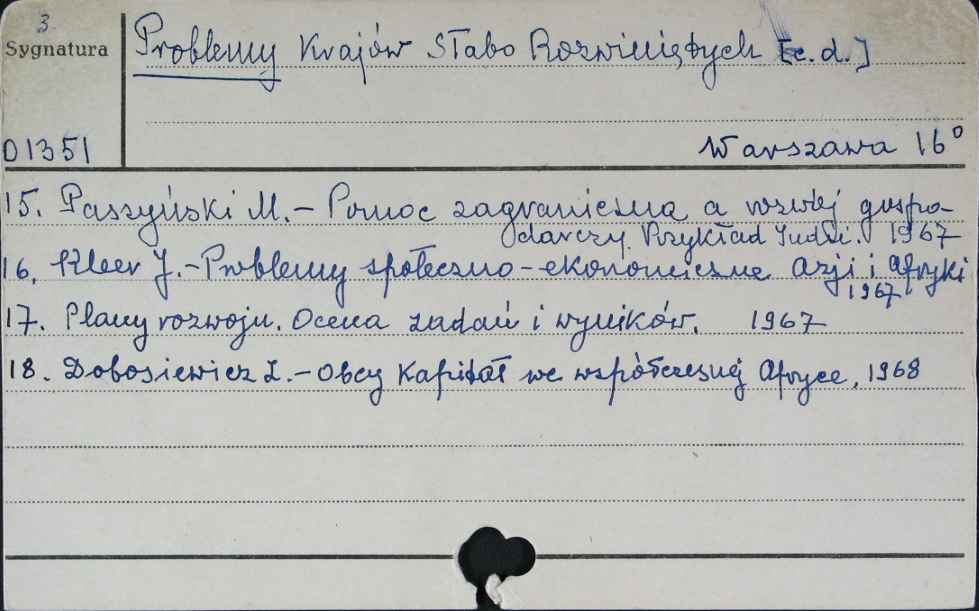 3
Sygnatura
Problemy Krajów Słabo Rozwiniętych [c.d.]
D1351
Warszawa 16°
15. Paszyński M. – Pomoc zagraniczna a rozwój gospo-
darczy. Przykład Indii. 1967
16. Kleer J. – Problemy społeczno-ekonomiczne Azji i Afryki
1967
17. Plany rozwoju. Ocena zadań i wyników. 1967
18. Dobosiewicz Z. – Obcy kapitał we współczesnej Afryce, 1968